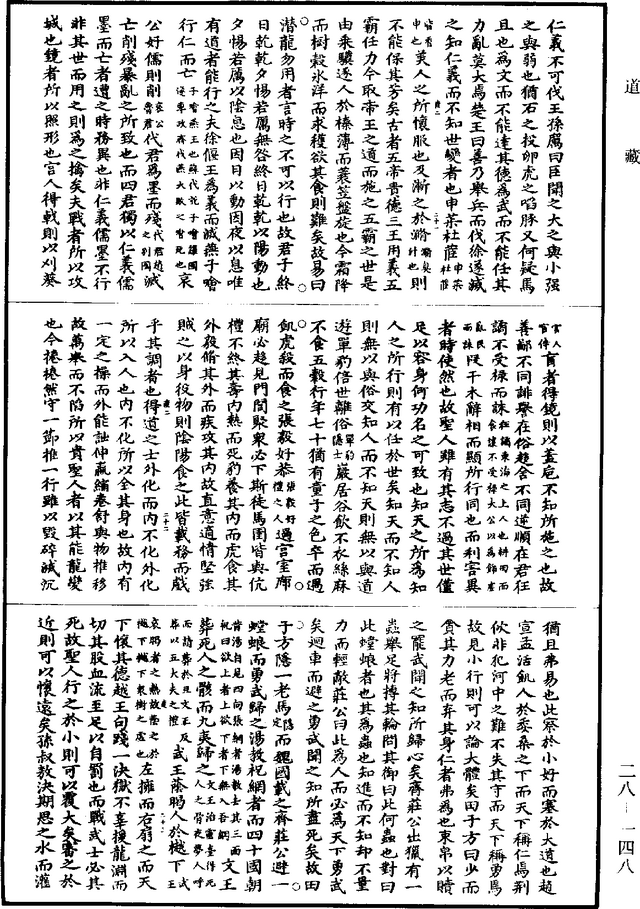 道藏
仁義不可伐王孫厲曰臣聞之大之與小強
之與弱也猶石之投卵虎之啗豚又何疑焉
且也為文而不能達其德為武而不能任其
力亂莫大焉楚王曰善乃舉兵而伐徐遂滅
之知仁義而不知世變者也申茮杜茝申茮杜茝
皆香草也美人之所懷服也及漸之於滫滫臭汁也則
不能保其芳矣古者五帝貴德三王用義五
霸任力今取帝王之道而施之五霸之世是
由乘驥逐人於榛薄而蓑笠盤旋也今霜降
而樹穀氷泮而求穫欲其食則難矣故易曰
潛龍勿用者言時之不可以行也故君子終
日乾乾夕惕若厲無咎終日乾乾以陽動也
夕惕若厲以陰息也因日以動因夜以息唯
有道者能行之夫徐偃王為義而滅燕子噲
行仁而亡子噲燕王也蘇代說子噲讓國哀
公好儒則削哀公魯君代君為墨而殘代君趙之別國滅
亡削殘暴亂之所致也而四君獨以仁義儒
墨而亡者遭之時務異也非仁義儒墨不行
非其世而用之則為之擒矣夫戟者所以攻
城也鏡者所以照形也宮人得戟則以刈葵
宮人宦侍盲者得鏡則以蓋卮不知所施之也故
善鄙不同誹譽在俗趨舍不同逆順在君狂
譎不受祿而誅狂譎東海之上人也耕田而食讓不受祿太公以為飾虛
亂民而誅段干木辭相而顯所行同也而利害異
者時使然也故聖人雖有其志不遇其世僅
足以容身何功名之可致也知天之所為知
人之所行則有以任於世矣知天而不知人
則無以與俗交知人而不知天則無以與道
遊單豹倍世離俗單豹隱士巖居谷飲不衣絲麻
不食五穀行年七十猶有童子之色卒而遇
飢虎殺而食之張毅好恭張毅好禮之人過宮室廊
廟必趨見門閭聚衆必下厮徒馬圉皆與伉
禮不終其壽內熱而死豹養其內而虎食其
外毅脩其外而疾攻其內故直意適情堅強
賊之以身役物則陰陽食之此皆載務而戲
乎其調者也得道之士外化而內不化外化
所以入人也內不化所以全其身也故內有
一定之操而外能詘伸贏縮卷舒與物推移
故萬舉而不陷所以貴聖人者以其能龍變
也今捲捲然守一節推一行雖以毀碎滅沉
猶且弗易也此察於小好而塞於大道也趙
宣孟活飢人於委桑之下而天下稱仁焉荆
佽非犯河中之難不失其守而天下稱勇焉
故見小行則可以論大體矣田子方曰少而
貪其力老而弃其身仁者弗為也束帛以贖
之罷武聞之知所歸心矣齊莊公出獵有一
蟲舉足將搏其輪問其御曰此何蟲也對曰
此螳蜋者也其為蟲也知進而不知却不量
力而輕敵莊公曰此為人而必為天下勇武
矣迴車而避之勇武聞之知所盡死矣故田
子方隱一老馬而魏國載之齊莊公避一
螳蜋而勇武歸之湯教祝網者而四十國朝
文王
葬死人之骸而九夷歸之
武王蔭暍人於樾下
左擁而右扇之而天
下懷其德越王句踐一決獄不辜援龍淵而
切其股血流至足以自罰也而戰武士必其
死故聖人行之於小則可以覆大矣審之於
近則可以懷遠矣孫叔敖決期思之水而灌
二八—一四八